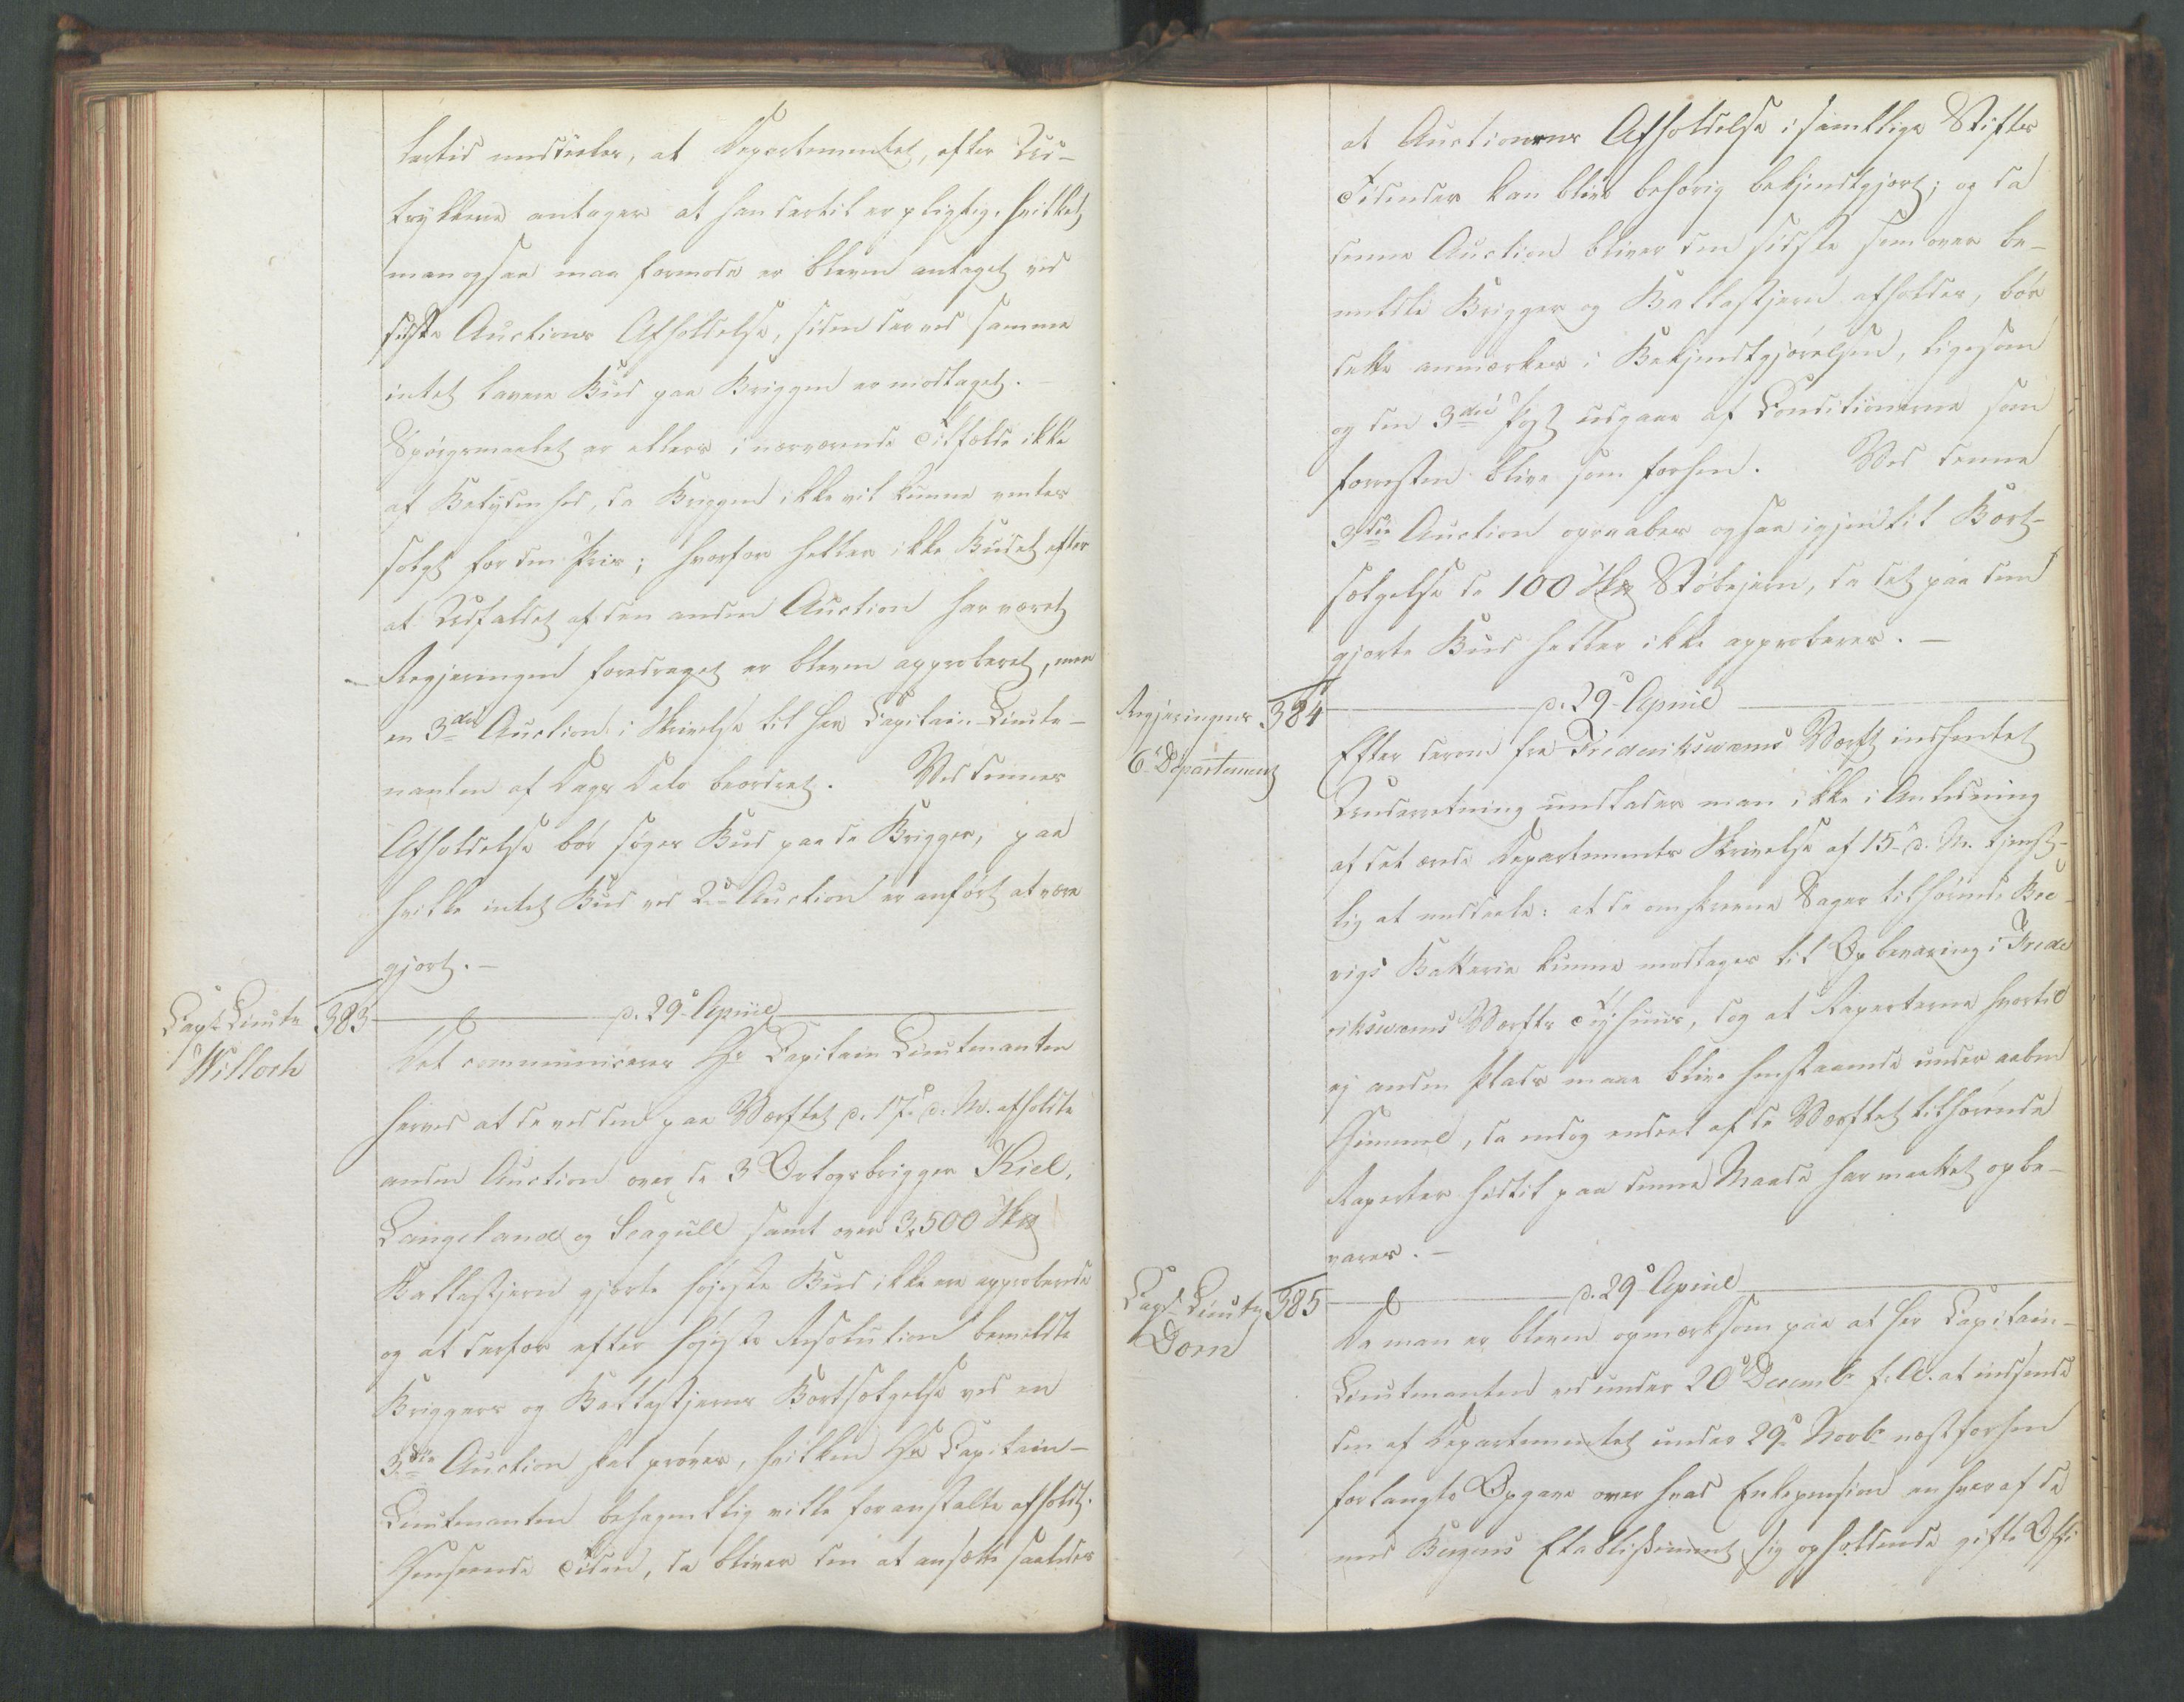 lertid meddeles, at Departementet, efter Ud-
trykkene antager at han dertil er pligtig, hvilket
man ogsaa maa formode er bleven antaget ved
sidste Auctions Afholdelse, siden der ved samme
intet lavere Bud paa Briggen er modtaget. —
Spørgsmaalet er ellers i nærværende Tilfælde ikke
af Betydenhed, da Briggen ikke vil kunne ventes
solgt for den Pris; hvorfor heller ikke Budet efter
at Udfaldet af den anden Auction har været
Regjeringen foredraget er bleven approberet, men
en 3die Auction i Skrivelse til Her Capitain-Lieute-
nanten af Dags Dato beordret. Ved dennes
Afholdelse bør søges Bud paa de Brigger, paa
hvilke intet Bud ved 2d Auction er anført at være
gjort. —
Capt Lieutn
Willoch
383
d. 29 April
Det communiceres Hr Capitain Lieutenanten
herved at de ved den paa Værftet d. 17 d. M. afholdte
anden Auction over de 3 Orlogsbrigger Kiel,
Langeland og Seagull samt over 3,500 Skp
Ballastjern gjorte høieste Bud ikke ere approberede
og at derfor efter høieste Resolution bemeldte
Briggers og Ballastjerns Bortsælgelse ved en
3die Auction skal prøves, hvilken Hr Capitain-
Lieutenanten behagentlig ville foranstalte afholdt.
Henseende Tiden, da bliver den at ansætte saaledes
at Auctionens Afholdelse i samtlige Stifts
Tidender kan blive behørig bekjendtgjort; og da
denne Auction bliver den sidste som over be-
meldte Brigger og Ballastjern afholdes, bør
dette anmærkes i Bekjendtgjørelsen, ligesom
og den 3die Post udgaae af Conditionerne som
forresten blive som forhen. Ved denne
3die Auction opraabes ogsaa igjen til Bort-
sælgelse de 100 Skp Støbejern, da det paa dem
gjorte Bud heller ikke approberes. —
Regjeringens
6 Departement
384
d. 29 April
Efter derom fra Frederiksværns Værft indhentet
Underretning undlader man ikke i Anledning
af det ærede Departements Skrivelse af 15 d. M. tjenst-
lig at meddele: at de omskrevne Sager tilhørende Bre-
vigs Batterie kunne modtages til Opbevaring i Frede
riksværns Værfts Tøihuus, dog at Raperterne hvortil
ej anden Plads maae blive henstaaende under aaben
Himmel, da endog endeel af de Værftet tilhørende
Raperter hidtil paa denne Maade har maattet opbe-
vares. —
Capt Lieutn
Dorn
385
d. 29 April
Da man er bleven opmærksom paa at Her Capitain-
Lieutenanten ved under 20 Decembr f. A. at indsende
den af Departementet under 29 Novbr næstforhen
forlangte Opgave over hvad Enkepension enhver af de
ved Etablissiment sig opholdende gifte Offi